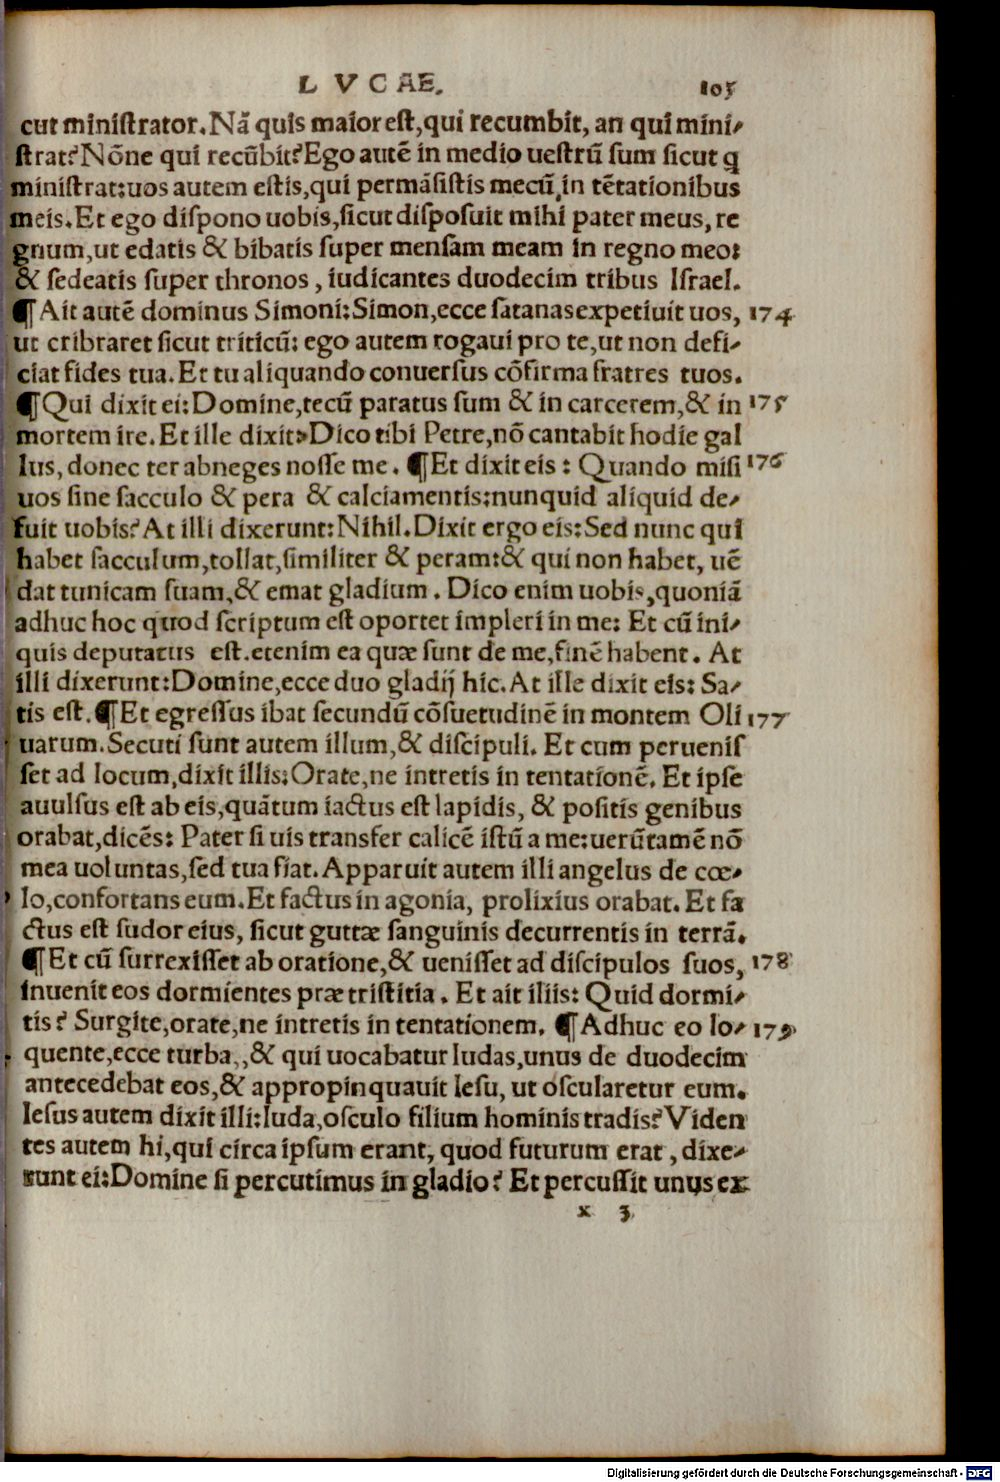 LVCAE. 105
cut ministrator. Nã quis maior est, qui recumbit, an qui mini⸗
strat? Nõne qui recũbit? Ego autẽ in medio uestrũ sum sicut ꝗ
ministrat: uos autem estis, qui permãsistis mecũ in tẽtationibus
meis. Et ego dispono uobis, sicut disposuit mihi pater meus, re
gnum, ut edatis & bibatis super mensam meam in regno meo:
& sedeatis super thronos, iudicantes duodecim tribus Israel.
¶ Ait autẽ dominus Simoni: Simon, ecce satanas expetiuit uos, 174
ut cribraret sicut triticũ: ego autem rogaui pro te, ut non defi⸗
ciat fides tua. Et tu aliquando conuersus cõfirma fratres tuos.
¶ Qui dixit ei: Domine, tecũ paratus sum & in carcerem, & in 175
mortem ire. Et ille dixit: Dico tibi Petre, nõ cantabit hodie gal
lus, donec ter abneges nosse me. ¶ Et dixit eis: Quando misi 176
uos sine sacculo & pera & calciamentis: nunquid aliquid de⸗
fuit uobis? At illi dixerunt: Nihil. Dixit ergo eis: Sed nunc qui
habet sacculum, tollat, similiter & peram: & qui non habet, uẽ
dat tunicam suam, & emat gladium. Dico enim uobis, quoniã
adhuc hoc quod scriptum est oportet impleri in me: Et cũ ini⸗
quis deputatus est. etenim ea quæ sunt de me, finẽ habent. At
illi dixerunt: Domine, ecce duo gladij hic. At ille dixit eis: Sa⸗
tis est. ¶ Et egressus ibat secundũ cõsuetudinẽ in montem Oli 177
uarum. Secuti sunt autem illum, & discipuli. Et cum peruenis
set ad locum, dixit illis: Orate, ne intretis in tentationẽ. Et ipse
auulsus est ab eis, quãtum iactus est lapidis, & positis genibus
orabat, dicẽs: Pater si uis transfer calicẽ istũ a me: uerũtamẽ nõ
mea uoluntas, sed tua fiat. Apparuit autem illi angelus de cœ⸗
lo, confortans eum. Et factus in agonia, prolixius orabat. Et fa
ctus est sudor eius, sicut guttæ sanguinis decurrentis in terrã.
¶ Et cũ surrexisset ab oratione, & uenisset ad discipulos suos, 178
inuenit eos dormientes præ tristitia. Et ait illis: Quid dormi⸗
tis? Surgite, orate, ne intretis in tentationem. ¶ Adhuc eo lo⸗ 179
quente, ecce turba, & qui uocabatur Iudas, unus de duodecim
antecedebat eos, & appropinquauit Iesu, ut oscularetur eum.
Iesus autem dixit illi: Iuda, osculo filium hominis tradis? Viden
tes autem hi, qui circa ipsum erant, quod futurum erat, dixe⸗
runt ei: Domine si percutimus in gladio? Et percussit unus ex
x 3
Digitalisierung gefördert durch die Deutsche Forschungsgemeinschaft - DFG